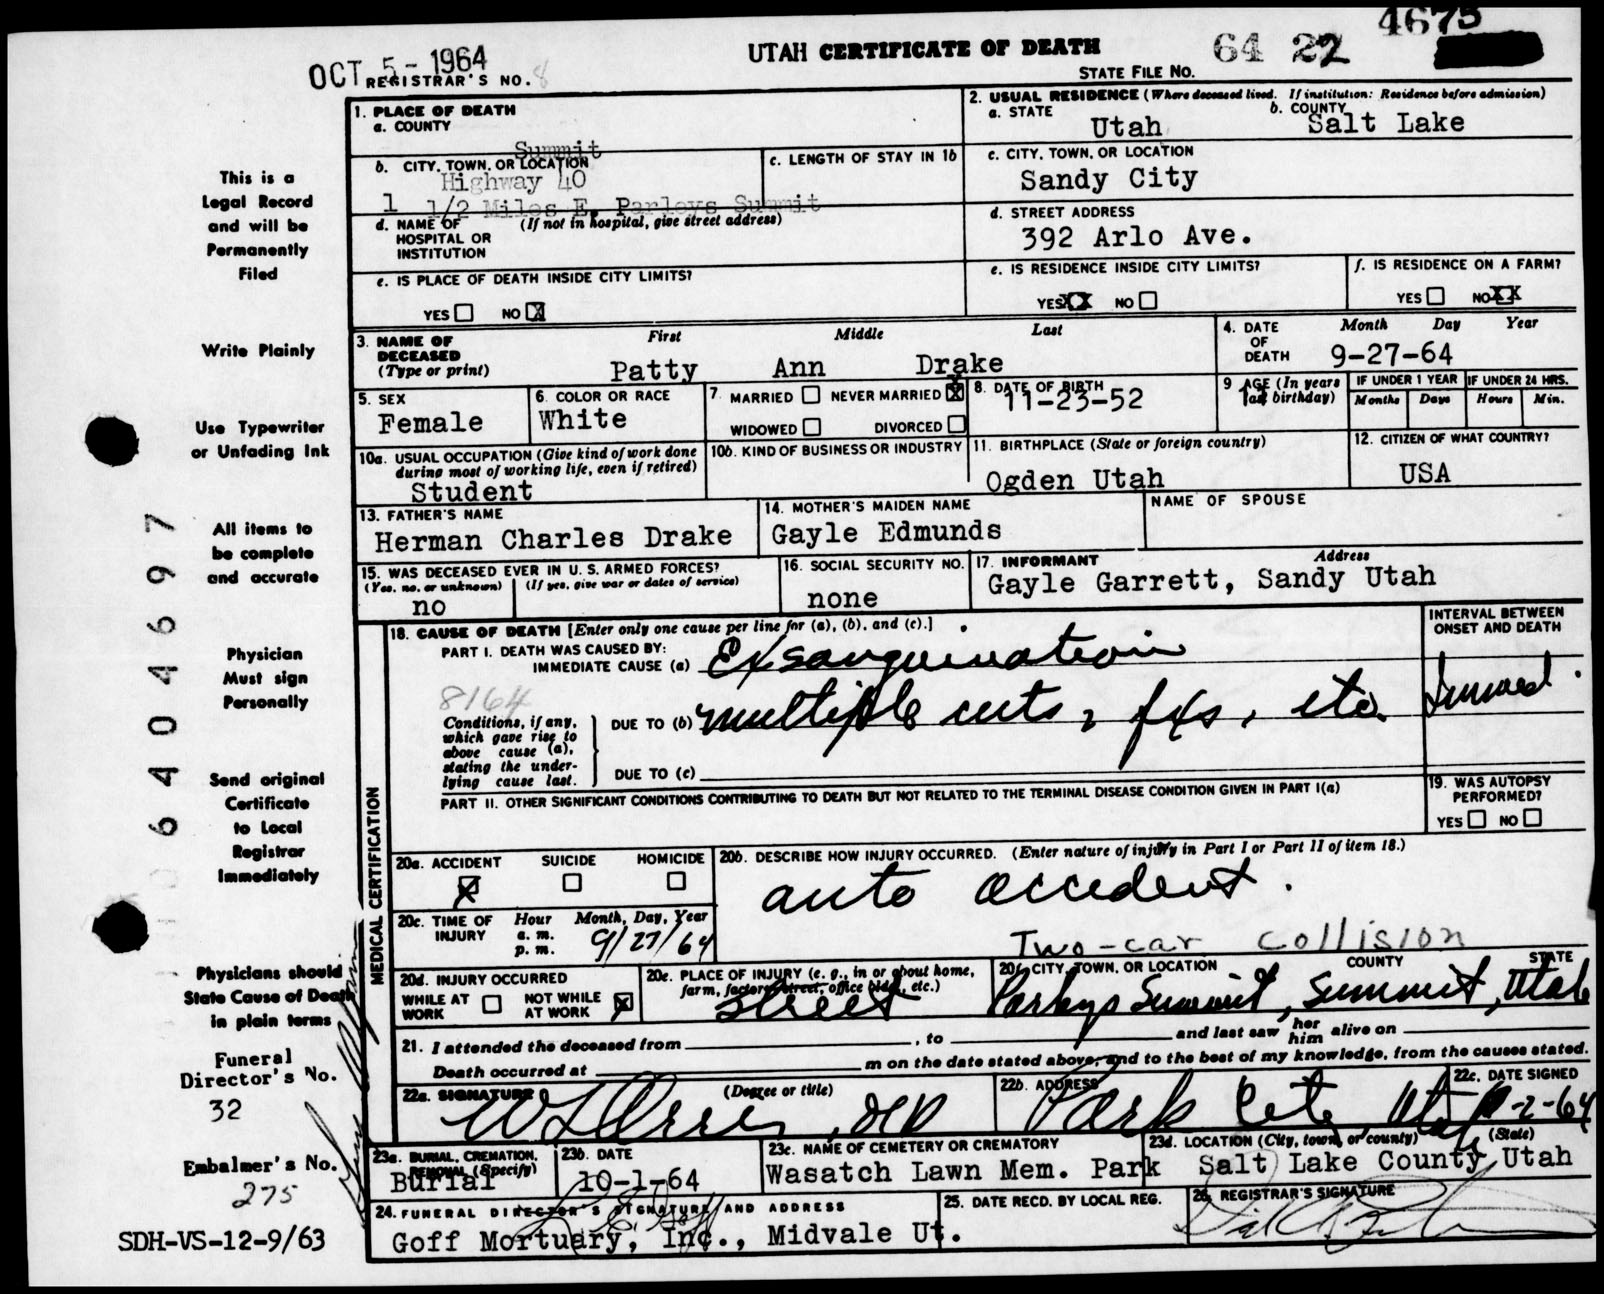 4675
OCT 5 - 1964
UTAH CERTIFICATE OF DEATH
64 22
REGISTRAR'S NO. 8
STATE FILE NO.
1. PLACE OF DEATH
a. COUNTY
Summit
2. USUAL RESIDENCE (Where deceased lived. If institution: Residence before admission)
a. STATE
Utah
b. COUNTY
Salt Lake
b. CITY, TOWN, OR LOCATION
Highway 40
1 1/2 Miles E. Parleys Summit
c. LENGTH OF STAY IN 1b
c. CITY, TOWN, OR LOCATION
Sandy City
d. NAME OF (If not in hospital, give street address)
HOSPITAL OR
INSTITUTION
d. STREET ADDRESS
392 Arlo Ave.
e. IS PLACE OF DEATH INSIDE CITY LIMITS?
YES NO X
e. IS RESIDENCE INSIDE CITY LIMITS?
YES XX NO
f. IS RESIDENCE ON A FARM?
YES NO XX
3. NAME OF
DECEASED
(Type or print)
First Middle Last
Patty Ann Drake
4. DATE
OF
DEATH
Month Day Year
9-27-64
5. SEX
Female
6. COLOR OR RACE
White
7. MARRIED NEVER MARRIED X
WIDOWED DIVORCED
8. DATE OF BIRTH
11-23-52
9 AGE (In years
last birthday)
IF UNDER 1 YEAR
Months Days
IF UNDER 24 HRS.
Hours Min.
10a. USUAL OCCUPATION (Give kind of work done
during most of working life, even if retired)
Student
10b. KIND OF BUSINESS OR INDUSTRY
11. BIRTHPLACE (State or foreign country)
Ogden Utah
12. CITIZEN OF WHAT COUNTRY?
USA
13. FATHER'S NAME
Herman Charles Drake
14. MOTHER'S MAIDEN NAME
Gayle Edmunds
NAME OF SPOUSE
15. WAS DECEASED EVER IN U. S. ARMED FORCES?
(Yes, no, or unknown) (If yes, give war or dates of service)
no
16. SOCIAL SECURITY NO.
none
17. INFORMANT Address
Gayle Garrett, Sandy Utah
MEDICAL CERTIFICATION
18. CAUSE OF DEATH [Enter only one cause per line for (a), (b), and (c).]
PART I. DEATH WAS CAUSED BY:
IMMEDIATE CAUSE (a) Exsanguination
INTERVAL BETWEEN
ONSET AND DEATH
8164
Conditions, if any,
which gave rise to
above cause (a),
stating the under-
lying cause last.
DUE TO (b) multiple cuts, fxs, etc.
DUE TO (c)
PART II. OTHER SIGNIFICANT CONDITIONS CONTRIBUTING TO DEATH BUT NOT RELATED TO THE TERMINAL DISEASE CONDITION GIVEN IN PART I(a)
19. WAS AUTOPSY
PERFORMED?
YES NO
20a. ACCIDENT SUICIDE HOMICIDE
X
20b. DESCRIBE HOW INJURY OCCURRED. (Enter nature of injury in Part I or Part II of item 18.)
auto accident.
Two-car collision
20c. TIME OF
INJURY
Hour Month, Day, Year
a. m.
p. m.
9/27/64
20d. INJURY OCCURRED
WHILE AT
WORK
NOT WHILE
AT WORK X
20e. PLACE OF INJURY (e. g., in or about home,
farm, factory, street, office bldg., etc.)
street
20f. CITY, TOWN, OR LOCATION COUNTY STATE
Parleys Summit, Summit, Utah
21. I attended the deceased from , to and last saw her
him alive on
Death occurred at m on the date stated above, and to the best of my knowledge, from the causes stated.
22a. SIGNATURE (Degree or title)
22b. ADDRESS
Park City, Utah
22c. DATE SIGNED
10-2-64
23a. BURIAL, CREMATION,
REMOVAL (Specify)
Burial
23b. DATE
10-1-64
23c. NAME OF CEMETERY OR CREMATORY
Wasatch Lawn Mem. Park
23d. LOCATION (City, town, or county) (State)
Salt Lake County, Utah
24. FUNERAL DIRECTOR'S SIGNATURE AND ADDRESS
Goff Mortuary, Inc., Midvale Ut.
25. DATE RECD. BY LOCAL REG.
26. REGISTRAR'S SIGNATURE
This is a
Legal Record
and will be
Permanently
Filed
Write Plainly
Use Typewriter
or Unfading Ink
All items to
be complete
and accurate
Physician
Must sign
Personally
Send original
Certificate
to Local
Registrar
Immediately
Physicians should
State Cause of Death
in plain terms
Funeral
Director's No.
32
Embalmer's No.
275
SDH-VS-12-9/63
6404697